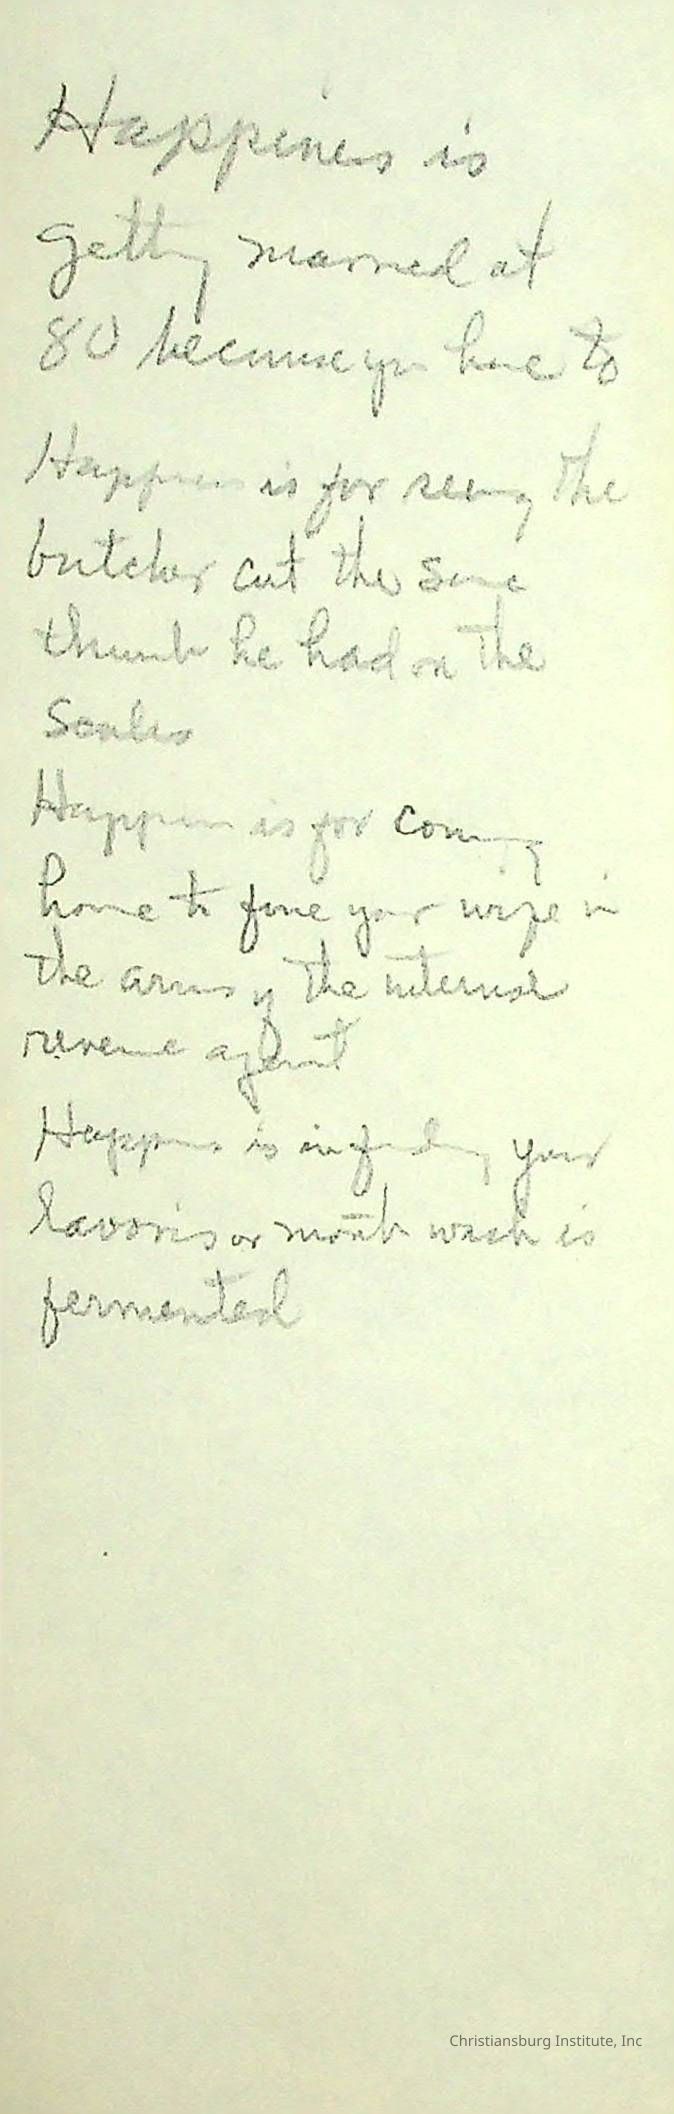 Happiness is
getting married at
80 because you have to
Happiness is for seeing the
butcher cut the same
thumb he had on the
Scales
Happiness is for coming
home to fine your wife in
the arms of the internal
revenue agent
Happiness is in finding your
lavoris or mouth wash is
fermented
Christiansburg Institute, Inc